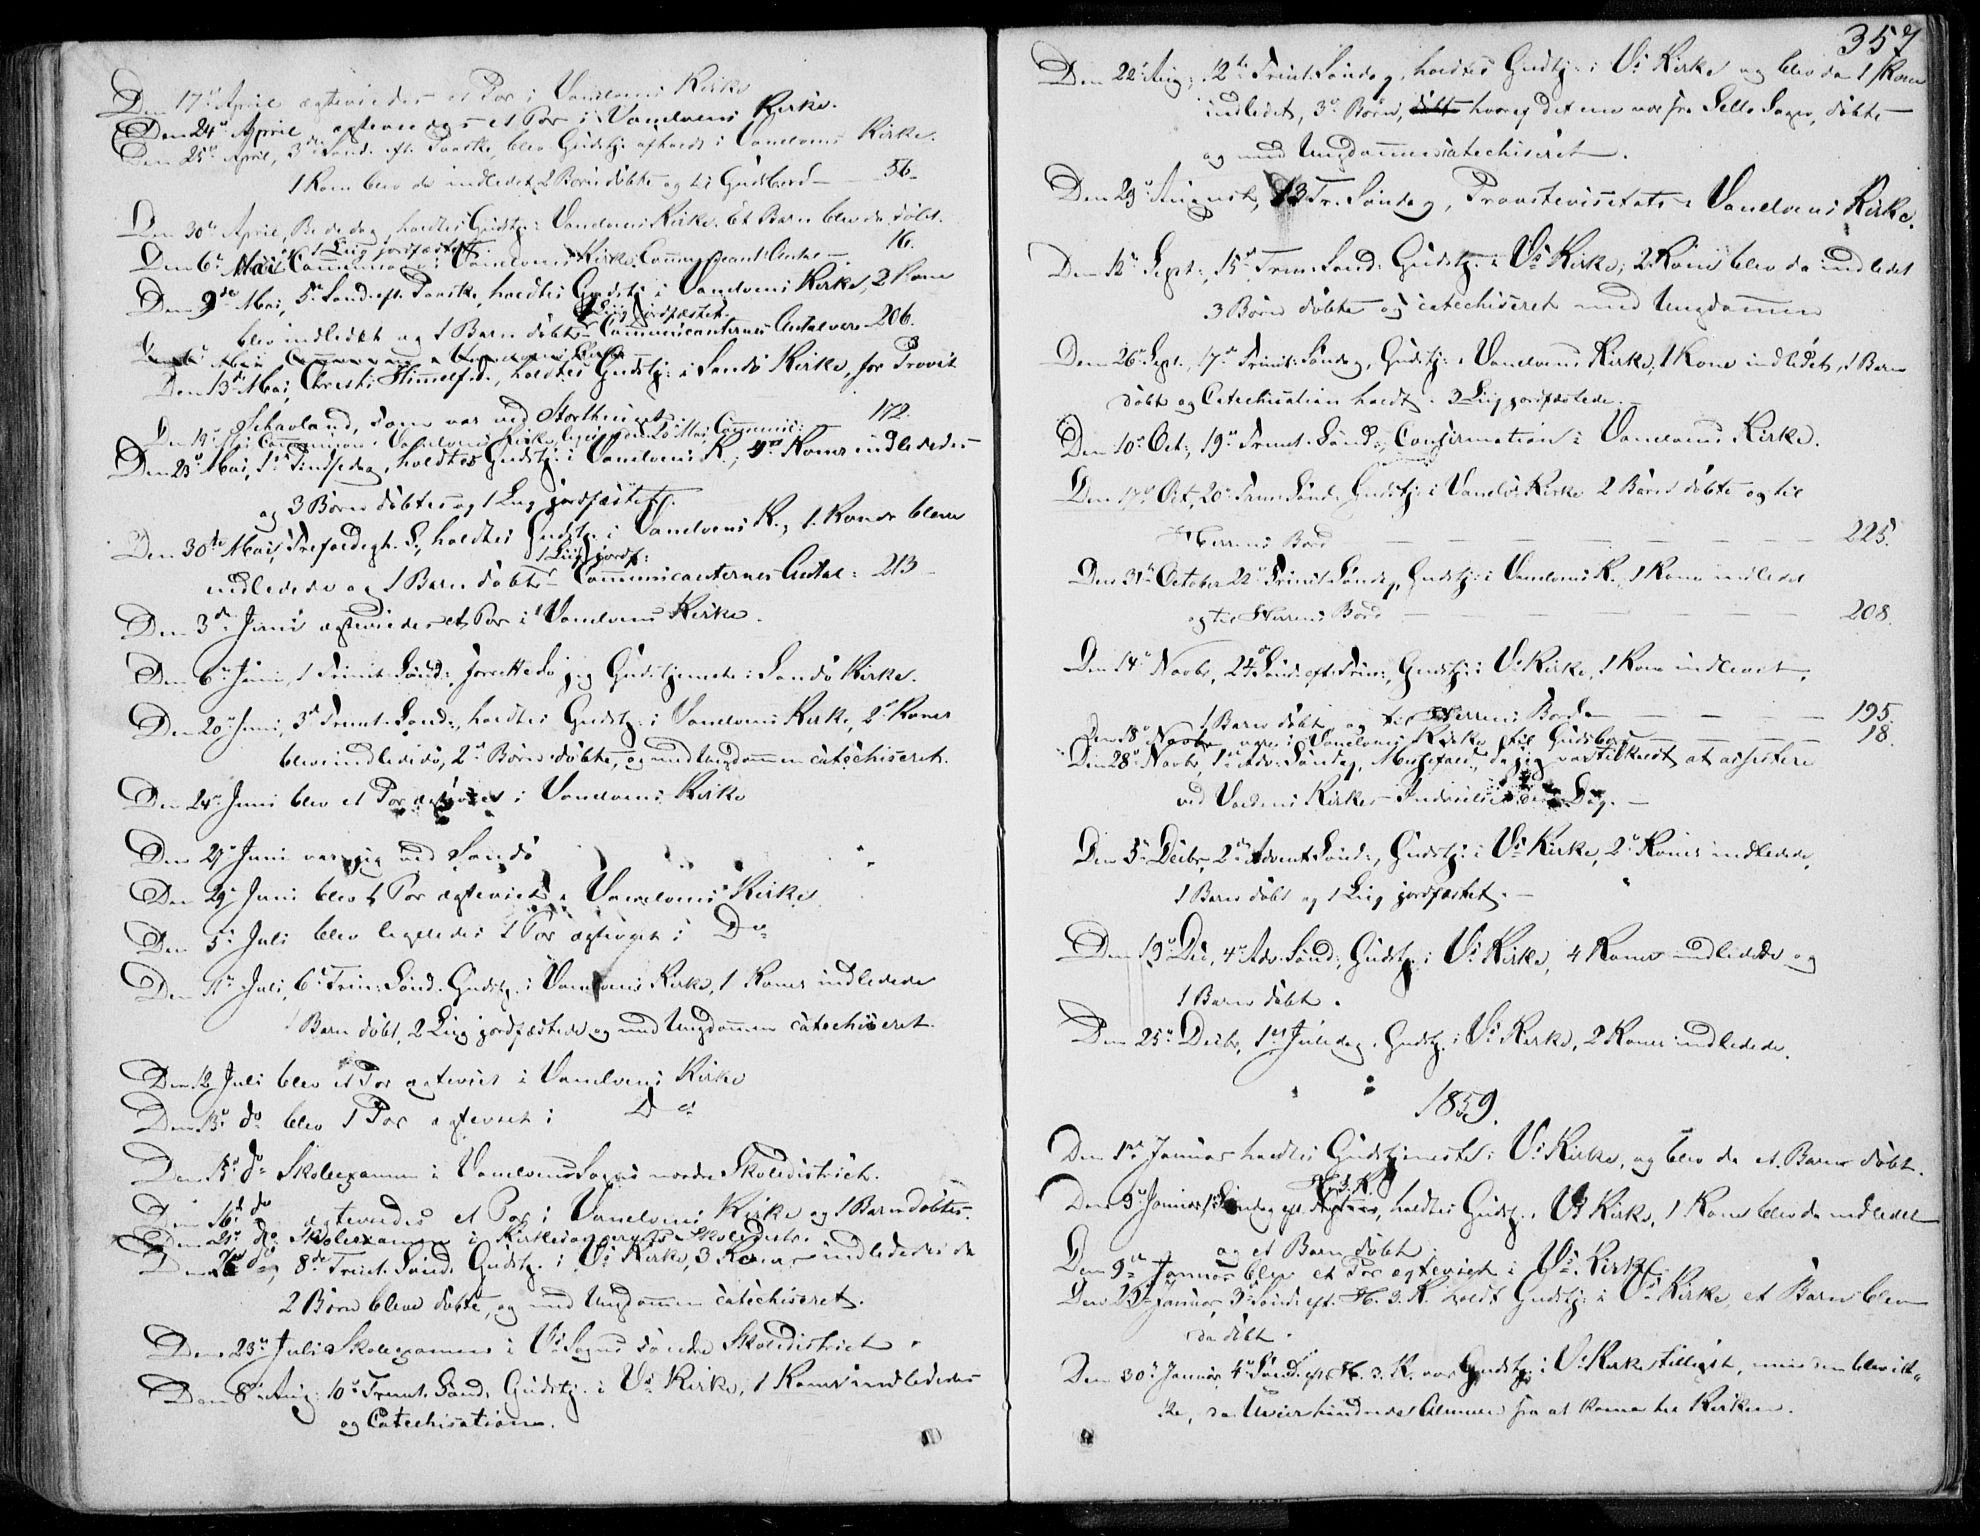 Den 17de April ægteviedes et Par i Vanelvens Kirke
Den 24de April ægteviedes et Par i Vanelvens Kirke.
Den 25de April, 3die Sønd. eft. Paaske, blev Gudstj. afholdt i Vanelvens Kirke.
1 Kone blev da indledet, 2 Børn døbte og til Gudsbord — 56.
Den 30de April, Bededag, holdtes Gudstj. i Vanelvens Kirke. Et Barn blev da døbt.
1 Liig jordfæstet.
Den 6te Mai Communion i Vanelvens Kirke. Communicant: Antal — 16.
Den 9de Mai, 5te Sønd. eft. Paaske, holdtes Gudstj. i Vanelvens Kirke, 2 Kone
1 Liig jordfæstet.
blev indledet og 1 Barn døbt. Communicanternes Antal var 206.
Den 13de Mai, Christi Himmelf. d., holdtes Gudstj. i Sandø Kirke, for Provst
Schavland, som var ved Storthinget. — 172.
Den 19de Mai Communion i Vanelvens Kirke, Mai, Communic:
Den 23de Mai, 1ste Pindsedag, holdtes Gudstj. i Vanelvens K., Koner indledede
og 3 Børn døbtes og 1 Liig jordfæstet.
Den 30te Mai, Trefoldigh. S., holdtes Gudstj. i Vanelvens K., 1. Koner bleve
1 Liig jordf:
indledede og 1 Barn døbt. Communicanternes Antal: 213
Den 3die Juni ægteviedes et Par i Vanelvens Kirke.
Den 6te Juni, 1 Trinit. Sønd., forrettede jeg Gudstjeneste i Sandø Kirke.
Den 20de Juni, 3die Trinit. Sønd., holdtes Gudstj. i Vanelvens Kirke, 2 Koner
bleve indledede, 2 Børn døbte, og med Ungdommen catechiseret.
Den 24de Juni blev et Par ægteviet i Vanelvens Kirke
Den 27 Juni var jeg ved Sandø
Den 29 Juni blev 1 Par ægteviet i Vanelvens Kirke
Den 5te Juli blev ligeledes 1 Par ægteviet i Do
Den 11te Juli, 6te Trin: Sønd. Gudstj. i Vanelvens Kirke, 1 Koner indledede
1 Barn døbt, 2 Liig jordfæstede og med Ungdommen catechiseret.
Den 12 Juli blev et Par ægteviet i Vanelvens Kirke
Den 13de do blev 1 Par ægteviet i Do
Den 15de do Skoleexamen i Vanelvens Sogns nordre Skoledistrict.
Den 16de do ægteviedes et Par i Vanelvens Kirke og 1 Barn døbtes.
Den 21de do Skoleexamen i Kirkesognets Skoledistr.
Den do, 8de Trinit. Sønd. Gudstj. i Vs Kirke, 3 Koner indlededes da
2 Børn bleve døbte, og med Ungdommen catechiseret.
Den 23de Juli Skoleexamen i Vs Sogns søndre Skoledistrict
Den 8de Aug: 10de Trinit. Sønd. Gudstj. i Vs Kirke, 1 Kone indlededes
og Catechisation.
357
Den 22de Aug; 12te Trinit. Søndag, holdtes Gudstj. i Vs Kirke og blev da 1 Kone
indledet, 3de Børn, hvoraf det ene var fra Selle Sogn, døbte
og med Ungdommen catechiseret.
Den 29de August, 13 Tr. Søndag, Provstevisitats i Vanelvens Kirke.
Den 12te Sept:, 15de Trin: Sønd: Gudstj. i Vs Kirke; 2 Koner blev da indledet
3 Børn døbte og catechiseret med Ungdommen
Den 26de Sept., 17de Trinit: Søndag, Gudstj. i Vanelvens Kirke, 1 Kone indledet, 1 Barn
døbt og Catechisation holdt. 3 Liig jordfæstede.
Den 10de Oct:, 19de Trinit. Sønd:, Confirmation i Vanelvens Kirke.
Den 17de Oct, 20de Trin: Sønd. Gudstj. i Vanelvs Kirke 2 Børn døbte og til
Herrens Bord — 225.
Den 31te October 22de Trinit. Søndag, Gudstj. i Vanelvens K., 1 Kone indledet
og til Herrens Bord — 208.
Den 14de Novbr, 24de Sønd. eft. Trin:, Gudstj. i Vs Kirke, 1 Kone indledet,
1 Barn døbt, og til Herrens Bord — 195.
Den 18de Novbr var i Vanelvens Kirke til Gudsbord — 18.
Den 28de Novbr, 1ste Adv. Søndag, Messefald, da jeg var tilkaldt at assistere
ved Voldens Kirkes Indvielse den Dag. —
Den 5te Decbr, 2den Advent Sønd:, Gudstj. i Vs Kirke, 2de Koner indledede,
1 Barn døbt og 1 Liig jordfæstet. —
Den 19de Dec, 4de Adv. Sønd:, Gudstj. i Vs Kirke, 4 Koner indledede og
1 Barn døbt.
Den 25de Decbr, 1ste Juledag, Gudstj. i Vs Kirke, 2 Koner indledede.
1859.
Den 1ste Januar holdtes Gudstjeneste i Vs Kirke, og blev da et Barn døbt.
H. 3. K.
Den 9de Januar, 1 Søndag eft. , holdtes Gudstj. i Vs Kirke, 1 Kone blev da indledet
og et Barn døbt.
Den 9de Januar blev et Par ægteviet i Vs. Kirke.
Den 23de Januar, 3die Sønd: eft. H. 3. K. holdt Gudstj. i Vs Kirke, et Barn blev
da døbt.
Den 30te Januar, 4de Sønd. eft. H. 3. K. var Gudstj. i Vs Kirke tillyst, men den blev ik-
ke, da Uveir hindrede Almuen fra at komme til Kirken.